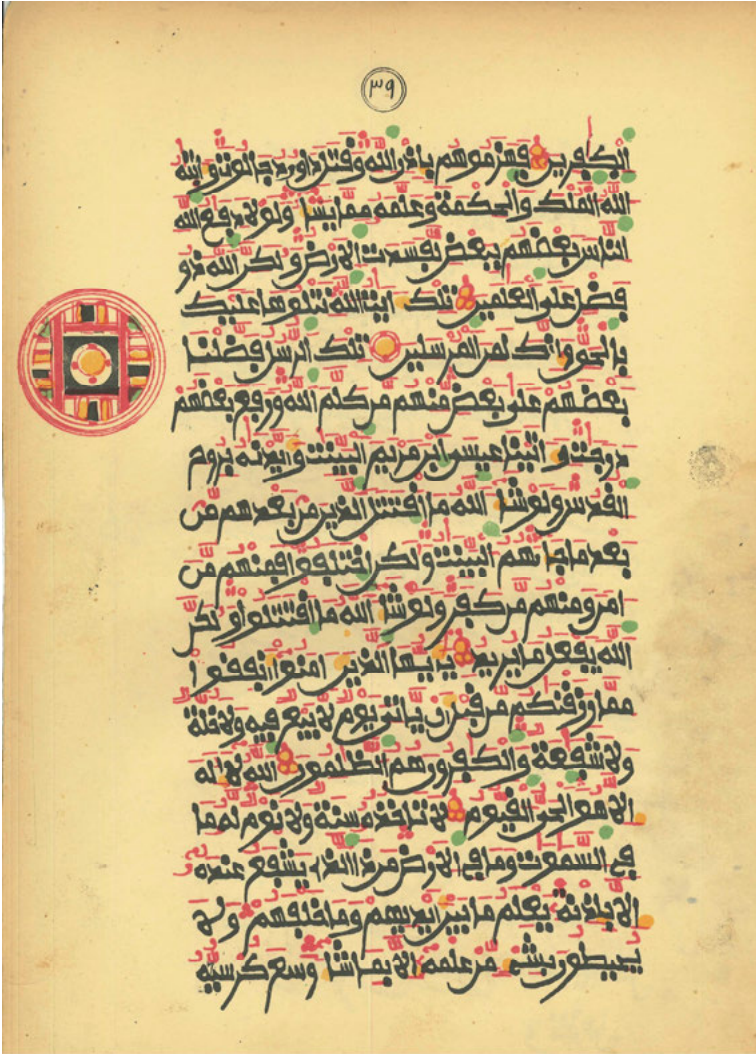 ٣٩
الكفرين فهزموهم باذن الله وقتل داود جالوت واتيه
الله الملك والحكمة وعلمه مما يشا ولولا دفع الله
الناس بعضهم ببعض لفسدت الارض ولكن الله ذو
فضل على العلمين تلك ايت الله نتلوها عليك
بالحق وانك لمن المرسلين تلك الرسل فضلنا
بعضهم على بعض منهم من كلم الله ورفع بعضهم
درجت واتينا عيسى ابن مريم البينت وايدنه بروح
القدس ولو شا الله ما اقتتل الذين من بعدهم من
بعد ما جاتهم البينت ولكن اختلفوا فمنهم من
امن ومنهم من كفر ولو شا الله ما اقتتلوا ولكن
الله يفعل ما يريد يايها الذين امنوا انفقوا
مما رزقنكم من قبل ان ياتى يوم لا بيع فيه ولا خلة
ولا شفعة والكفرون هم الظلمون الله لا اله
الا هو الحى القيوم لا تاخذه سنة ولا نوم له ما
فى السموت وما فى الارض من ذا الذى يشفع عنده
الا باذنه يعلم ما بين ايديهم وما خلفهم ولا
يحيطون بشى من علمه الا بما شا وسع كرسيه